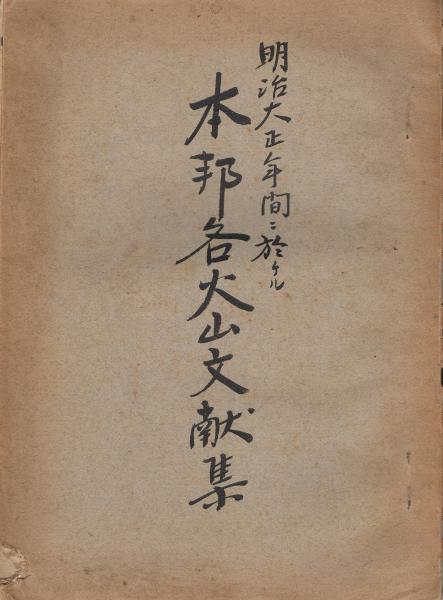 明治大正年間ニ於ケル
本邦各火山文献集